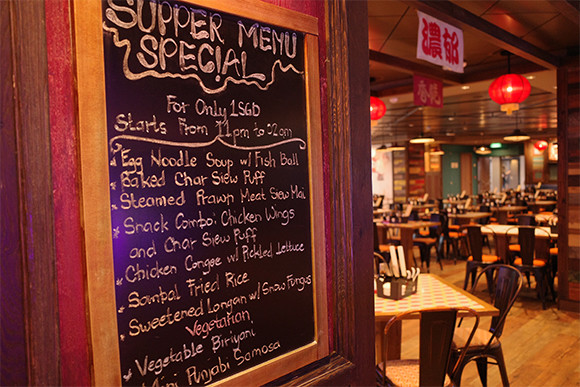 SUPPER MENU
SPECIAL
For Only 1SGD
Starts From 11pm to 02am
* Egg Noodle Soup w/ Fish Ball
* Baked Char Siew Puff
* Steamed Prawn Meat Siew Mai
* Snack Combo: Chicken Wings
and Char Siew Puff
* Chicken Congee w/ Pickled Lettuce
* Sambal Fried Rice
* Sweetened Longan w/ Snow Fungus
Vegetarian
* Vegetable Biriyani
* Mini Punjabi Samosa